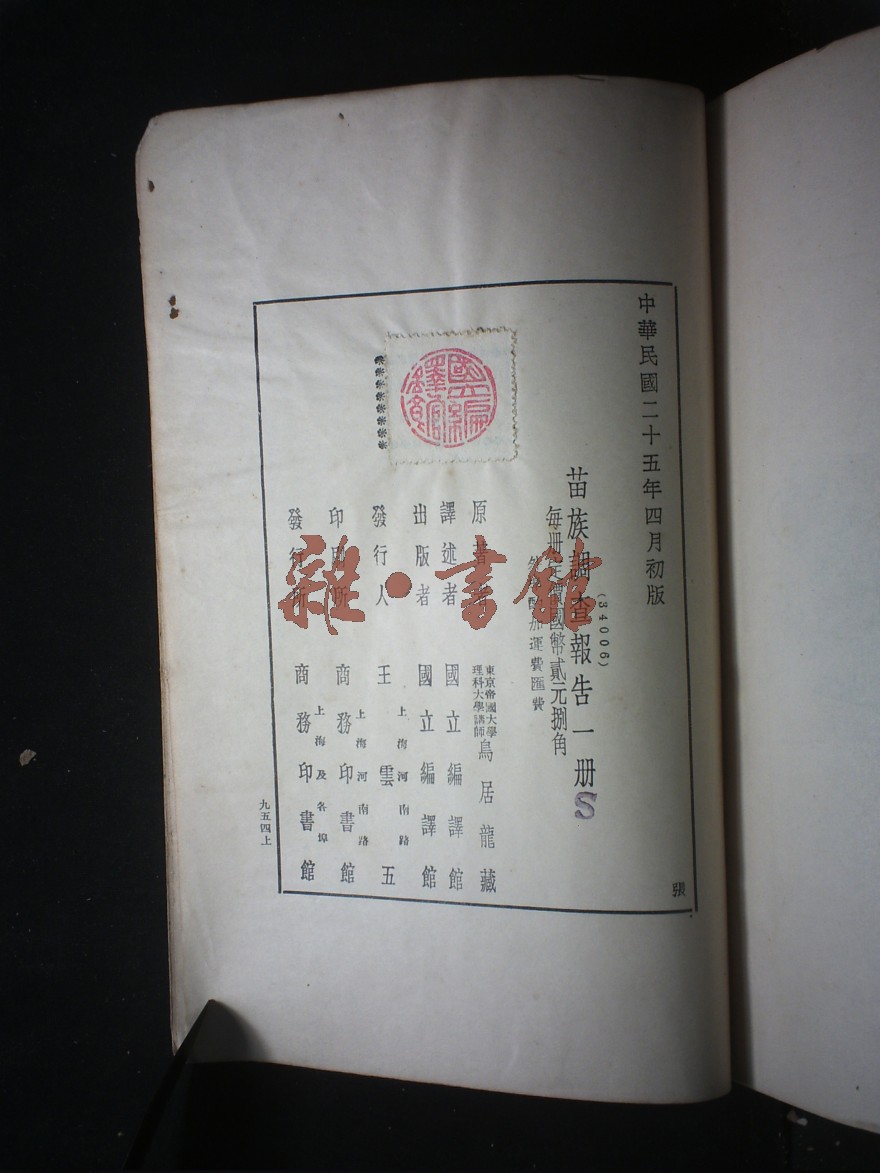 中華民國二十五年四月初版
(34006)
苗族調查報告一册
S
每册定價國幣貳元捌角
外埠酌加運費匯費
原著者 東京帝國大學理科大學講師 鳥居龍藏
譯述者 國立編譯館
出版者 國立編譯館
發行人 王雲五
上海河南路
印刷所 商務印書館
上海河南路
發行所 商務印書館
上海及各埠
國立編譯館
九五四上
張
雜·書館